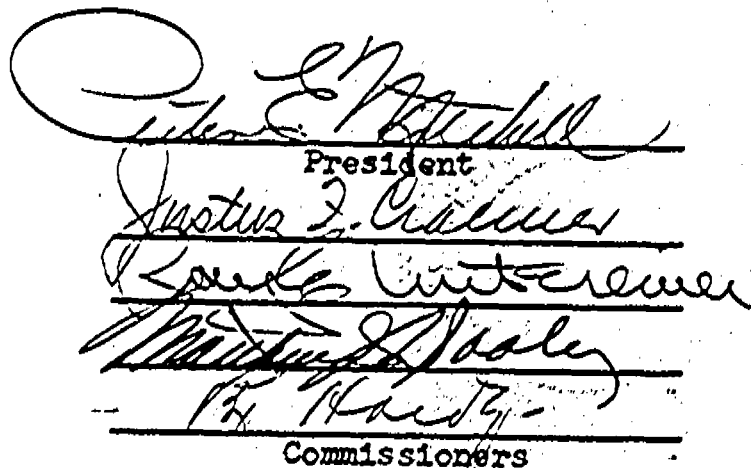 Peter E. Mitchell
President
Justus F. Craemer
Untereiner
Matthew J. Dooley
Hardy
Commissioners